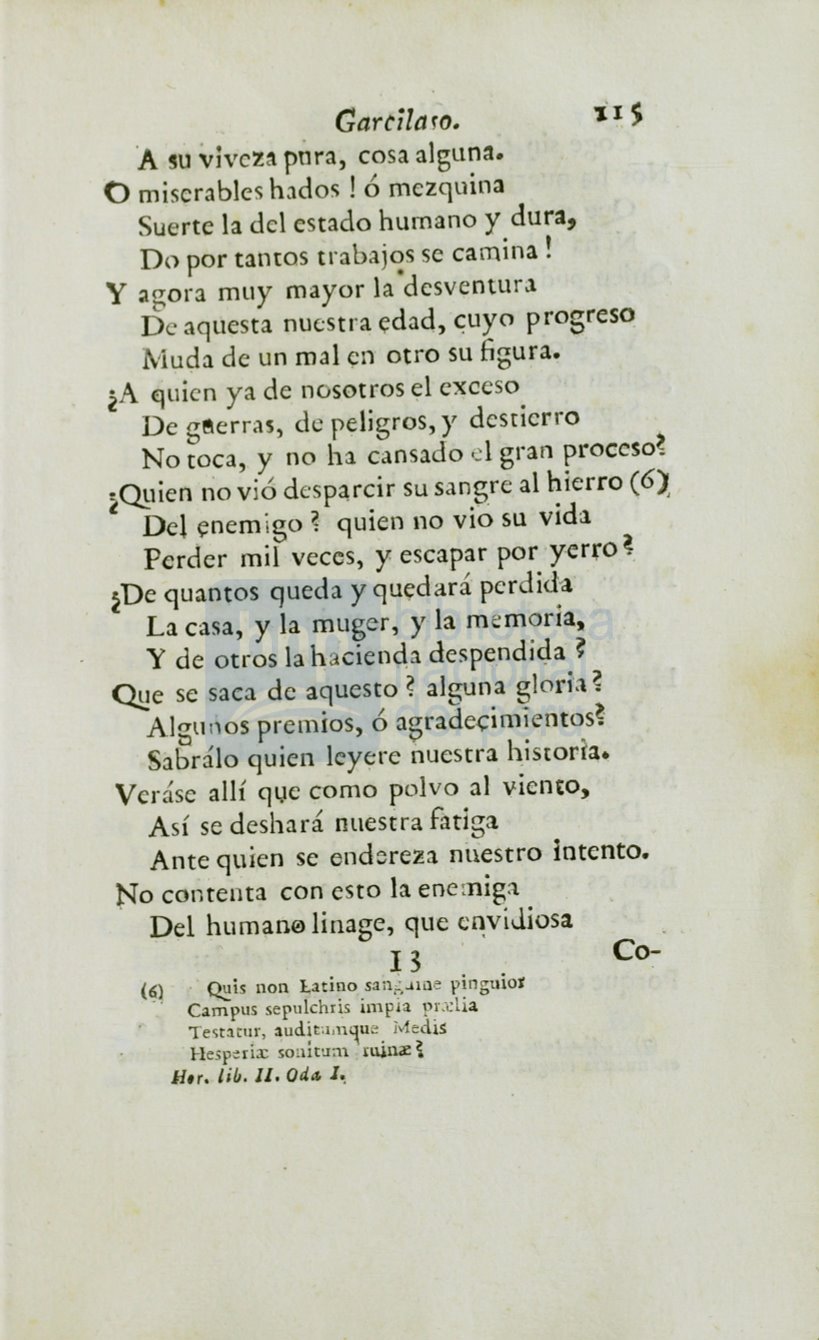 Garcilaso. 115
A su viveza pura, cosa alguna.
O miserables hados ! ó mezquina
Suerte la del estado humano y dura,
Do por tantos trabajos se camina !
Y agora muy mayor la desventura
De aquesta nuestra edad, cuyo progreso
Muda de un mal en otro su figura.
¿A quien ya de nosotros el exceso
De guerras, de peligros, y destierro
No toca, y no ha cansado el gran proceso?
¿Quien no vió desparcir su sangre al hierro (6)
Del enemigo ? quien no vio su vida
Perder mil veces, y escapar por yerro?
¿De quantos queda y quedará perdida
La casa, y la muger, y la memoria,
Y de otros la hacienda despendida ?
Que se saca de aquesto ? alguna gloria?
Algunos premios, ó agradecimientos?
Sabrálo quien leyere nuestra historia.
Veráse allí que como polvo al viento,
Así se deshará nuestra fatiga
Ante quien se endereza nuestro intento.
No contenta con esto la enemiga
Del humano linage, que envidiosa
I3 Co-
(6) Quis non Latino sanguine pinguior
Campus sepulchris impia prælia
Testatur, auditumque Medis
Hesperiæ sonitum ruinæ?
Hor. lib. II. Oda I.